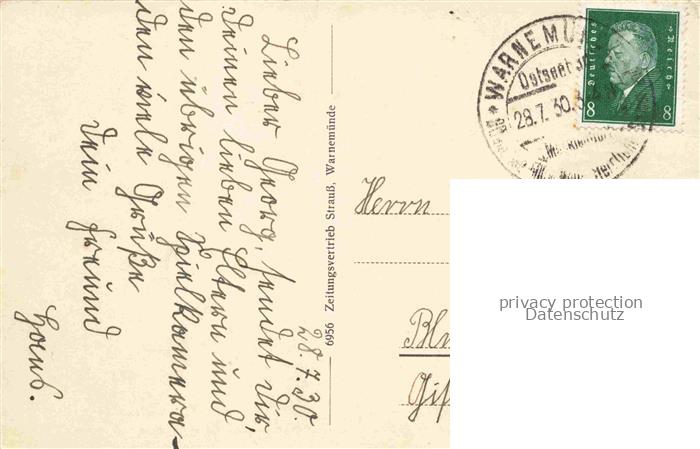 28.7.30.
Lieber Georg, sendet Dir,
Deinen lieben Eltern und
den übrigen Spielkamera-
den viele Grüße
Dein Freund
Hans.
6956 Zeitungsvertrieb Strauß, Warnemünde
WARNEMÜ
Ostseeb
28.7.30.
Deutsches Reich
8 8
Herrn
privacy protection
Datenschutz